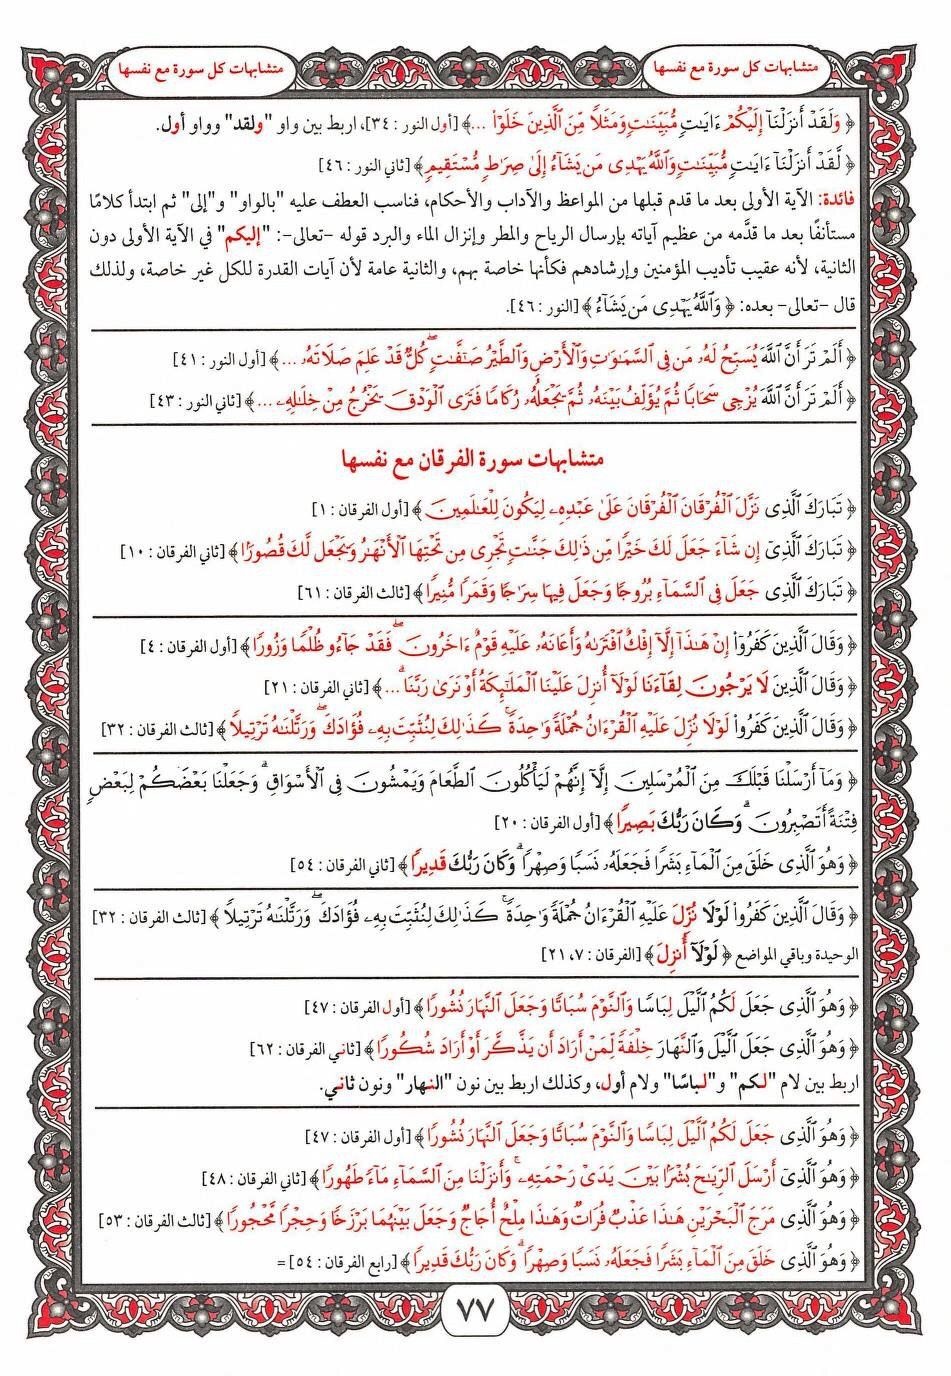 متشابهات كل سورة مع نفسها
متشابهات كل سورة مع نفسها
﴿ وَلَقَدْ أَنزَلْنَآ إِلَيْكُمْ ءَايَٰتٍ مُّبَيِّنَٰتٍ وَمَثَلًا مِّنَ ٱلَّذِينَ خَلَوْا۟ ...﴾ [أول النور : ٣٤]، اربط بين واو "ولقد" وواو أول.
﴿ لَّقَدْ أَنزَلْنَآ ءَايَٰتٍ مُّبَيِّنَٰتٍ وَٱللَّهُ يَهْدِى مَن يَشَآءُ إِلَىٰ صِرَٰطٍ مُّسْتَقِيمٍ﴾ [ثاني النور : ٤٦]
فائدة: الآية الأولى بعد ما قدم قبلها من المواعظ والآداب والأحكام، فناسب العطف عليه "بالواو" و"إلى" ثم ابتدأ كلامًا
مستأنفًا بعد ما قدَّمه من عظيم آياته بإرسال الرياح والمطر وإنزال الماء والبرد قوله -تعالى-: "إليكم" في الآية الأولى دون
الثانية، لأنه عقيب تأديب المؤمنين وإرشادهم فكأنها خاصة بهم، والثانية عامة لأن آيات القدرة للكل غير خاصة، ولذلك
قال -تعالى- بعده: ﴿ وَٱللَّهُ يَهْدِى مَن يَشَآءُ ﴾ [النور : ٤٦].
﴿ أَلَمْ تَرَ أَنَّ ٱللَّهَ يُسَبِّحُ لَهُۥ مَن فِى ٱلسَّمَٰوَٰتِ وَٱلْأَرْضِ وَٱلطَّيْرُ صَٰٓفَّٰتٍ ۖ كُلٌّ قَدْ عَلِمَ صَلَاتَهُۥ ...﴾ [أول النور : ٤١]
﴿ أَلَمْ تَرَ أَنَّ ٱللَّهَ يُزْجِى سَحَابًا ثُمَّ يُؤَلِّفُ بَيْنَهُۥ ثُمَّ يَجْعَلُهُۥ رُكَامًا فَتَرَى ٱلْوَدْقَ يَخْرُجُ مِنْ خِلَٰلِهِۦ ...﴾ [ثاني النور : ٤٣]
متشابهات سورة الفرقان مع نفسها
﴿ تَبَارَكَ ٱلَّذِى نَزَّلَ ٱلْفُرْقَانَ ٱلْفُرْقَانَ عَلَىٰ عَبْدِهِۦ لِيَكُونَ لِلْعَٰلَمِينَ ﴾ [أول الفرقان : ١]
﴿ تَبَارَكَ ٱلَّذِىٓ إِن شَآءَ جَعَلَ لَكَ خَيْرًا مِّن ذَٰلِكَ جَنَّٰتٍ تَجْرِى مِن تَحْتِهَا ٱلْأَنْهَٰرُ وَيَجْعَل لَّكَ قُصُورًۢا ﴾ [ثاني الفرقان : ١٠]
﴿ تَبَارَكَ ٱلَّذِى جَعَلَ فِى ٱلسَّمَآءِ بُرُوجًا وَجَعَلَ فِيهَا سِرَٰجًا وَقَمَرًا مُّنِيرًا ﴾ [ثالث الفرقان : ٦١]
﴿ وَقَالَ ٱلَّذِينَ كَفَرُوٓا۟ إِنْ هَٰذَآ إِلَّآ إِفْكٌ ٱفْتَرَىٰهُ وَأَعَانَهُۥ عَلَيْهِ قَوْمٌ ءَاخَرُونَ ۖ فَقَدْ جَآءُو ظُلْمًا وَزُورًا ﴾ [أول الفرقان : ٤]
﴿ وَقَالَ ٱلَّذِينَ لَا يَرْجُونَ لِقَآءَنَا لَوْلَآ أُنزِلَ عَلَيْنَا ٱلْمَلَٰٓئِكَةُ أَوْ نَرَىٰ رَبَّنَا ۗ ... ﴾ [ثاني الفرقان : ٢١]
﴿ وَقَالَ ٱلَّذِينَ كَفَرُوا۟ لَوْلَا نُزِّلَ عَلَيْهِ ٱلْقُرْءَانُ جُمْلَةً وَٰحِدَةً ۚ كَذَٰلِكَ لِنُثَبِّتَ بِهِۦ فُؤَادَكَ ۖ وَرَتَّلْنَٰهُ تَرْتِيلًا ﴾ [ثالث الفرقان : ٣٢]
﴿ وَمَآ أَرْسَلْنَا قَبْلَكَ مِنَ ٱلْمُرْسَلِينَ إِلَّآ إِنَّهُمْ لَيَأْكُلُونَ ٱلطَّعَامَ وَيَمْشُونَ فِى ٱلْأَسْوَاقِ ۗ وَجَعَلْنَا بَعْضَكُمْ لِبَعْضٍ
فِتْنَةً أَتَصْبِرُونَ ۗ وَكَانَ رَبُّكَ بَصِيرًا ﴾ [أول الفرقان : ٢٠]
﴿ وَهُوَ ٱلَّذِى خَلَقَ مِنَ ٱلْمَآءِ بَشَرًا فَجَعَلَهُۥ نَسَبًا وَصِهْرًا ۗ وَكَانَ رَبُّكَ قَدِيرًا ﴾ [ثاني الفرقان : ٥٤]
﴿ وَقَالَ ٱلَّذِينَ كَفَرُوا۟ لَوْلَا نُزِّلَ عَلَيْهِ ٱلْقُرْءَانُ جُمْلَةً وَٰحِدَةً ۚ كَذَٰلِكَ لِنُثَبِّتَ بِهِۦ فُؤَادَكَ ۖ وَرَتَّلْنَٰهُ تَرْتِيلًا ﴾ [ثالث الفرقان : ٣٢]
الوحيدة وباقي المواضع ﴿ لَوْلَآ أُنزِلَ ﴾ [الفرقان : ٧، ٢١]
﴿ وَهُوَ ٱلَّذِى جَعَلَ لَكُمُ ٱلَّيْلَ لِبَاسًا وَٱلنَّوْمَ سُبَاتًا وَجَعَلَ ٱلنَّهَارَ نُشُورًا ﴾ [أول الفرقان : ٤٧]
﴿ وَهُوَ ٱلَّذِى جَعَلَ ٱلَّيْلَ وَٱلنَّهَارَ خِلْفَةً لِّمَنْ أَرَادَ أَن يَذَّكَّرَ أَوْ أَرَادَ شُكُورًا ﴾ [ثاني الفرقان : ٦٢]
اربط بين لام "لكم" و"لباسًا" ولام أول، وكذلك اربط بين نون "النهار" ونون ثاني.
﴿ وَهُوَ ٱلَّذِى جَعَلَ لَكُمُ ٱلَّيْلَ لِبَاسًا وَٱلنَّوْمَ سُبَاتًا وَجَعَلَ ٱلنَّهَارَ نُشُورًا ﴾ [أول الفرقان : ٤٧]
﴿ وَهُوَ ٱلَّذِىٓ أَرْسَلَ ٱلرِّيَٰحَ بُشْرًۢا بَيْنَ يَدَىْ رَحْمَتِهِۦ ۚ وَأَنزَلْنَا مِنَ ٱلسَّمَآءِ مَآءً طَهُورًا ﴾ [ثاني الفرقان : ٤٨]
﴿ وَهُوَ ٱلَّذِى مَرَجَ ٱلْبَحْرَيْنِ هَٰذَا عَذْبٌ فُرَاتٌ وَهَٰذَا مِلْحٌ أُجَاجٌ وَجَعَلَ بَيْنَهُمَا بَرْزَخًا وَحِجْرًا مَّحْجُورًا ﴾ [ثالث الفرقان : ٥٣]
﴿ وَهُوَ ٱلَّذِى خَلَقَ مِنَ ٱلْمَآءِ بَشَرًا فَجَعَلَهُۥ نَسَبًا وَصِهْرًا ۗ وَكَانَ رَبُّكَ قَدِيرًا ﴾ [رابع الفرقان : ٥٤] =
٧٧